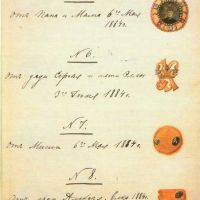 отъ Папа и Мама 6го Мая
1884 г.
№ 6.
отъ дяди Сергея и тети Эллы
3го Іюня 1884 г.
№ 7.
отъ Миши 6го Мая 1884 г.
№ 8.
отъ 1884 г.